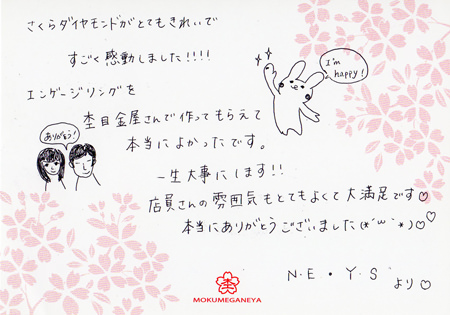 さくらダイヤモンドがとてもきれいで
すごく感動しました!!!!
I'm happy!
エンゲージリングを
杢目金屋さんで作ってもらえて
本当によかったです。
ありがとう!
一生大事にします!!
店員さんの雰囲気もとてもよくて大満足です♡
本当にありがとうございました(*´ω`*)♡♡
N・E・Y・S より♡
MOKUMEGANEYA